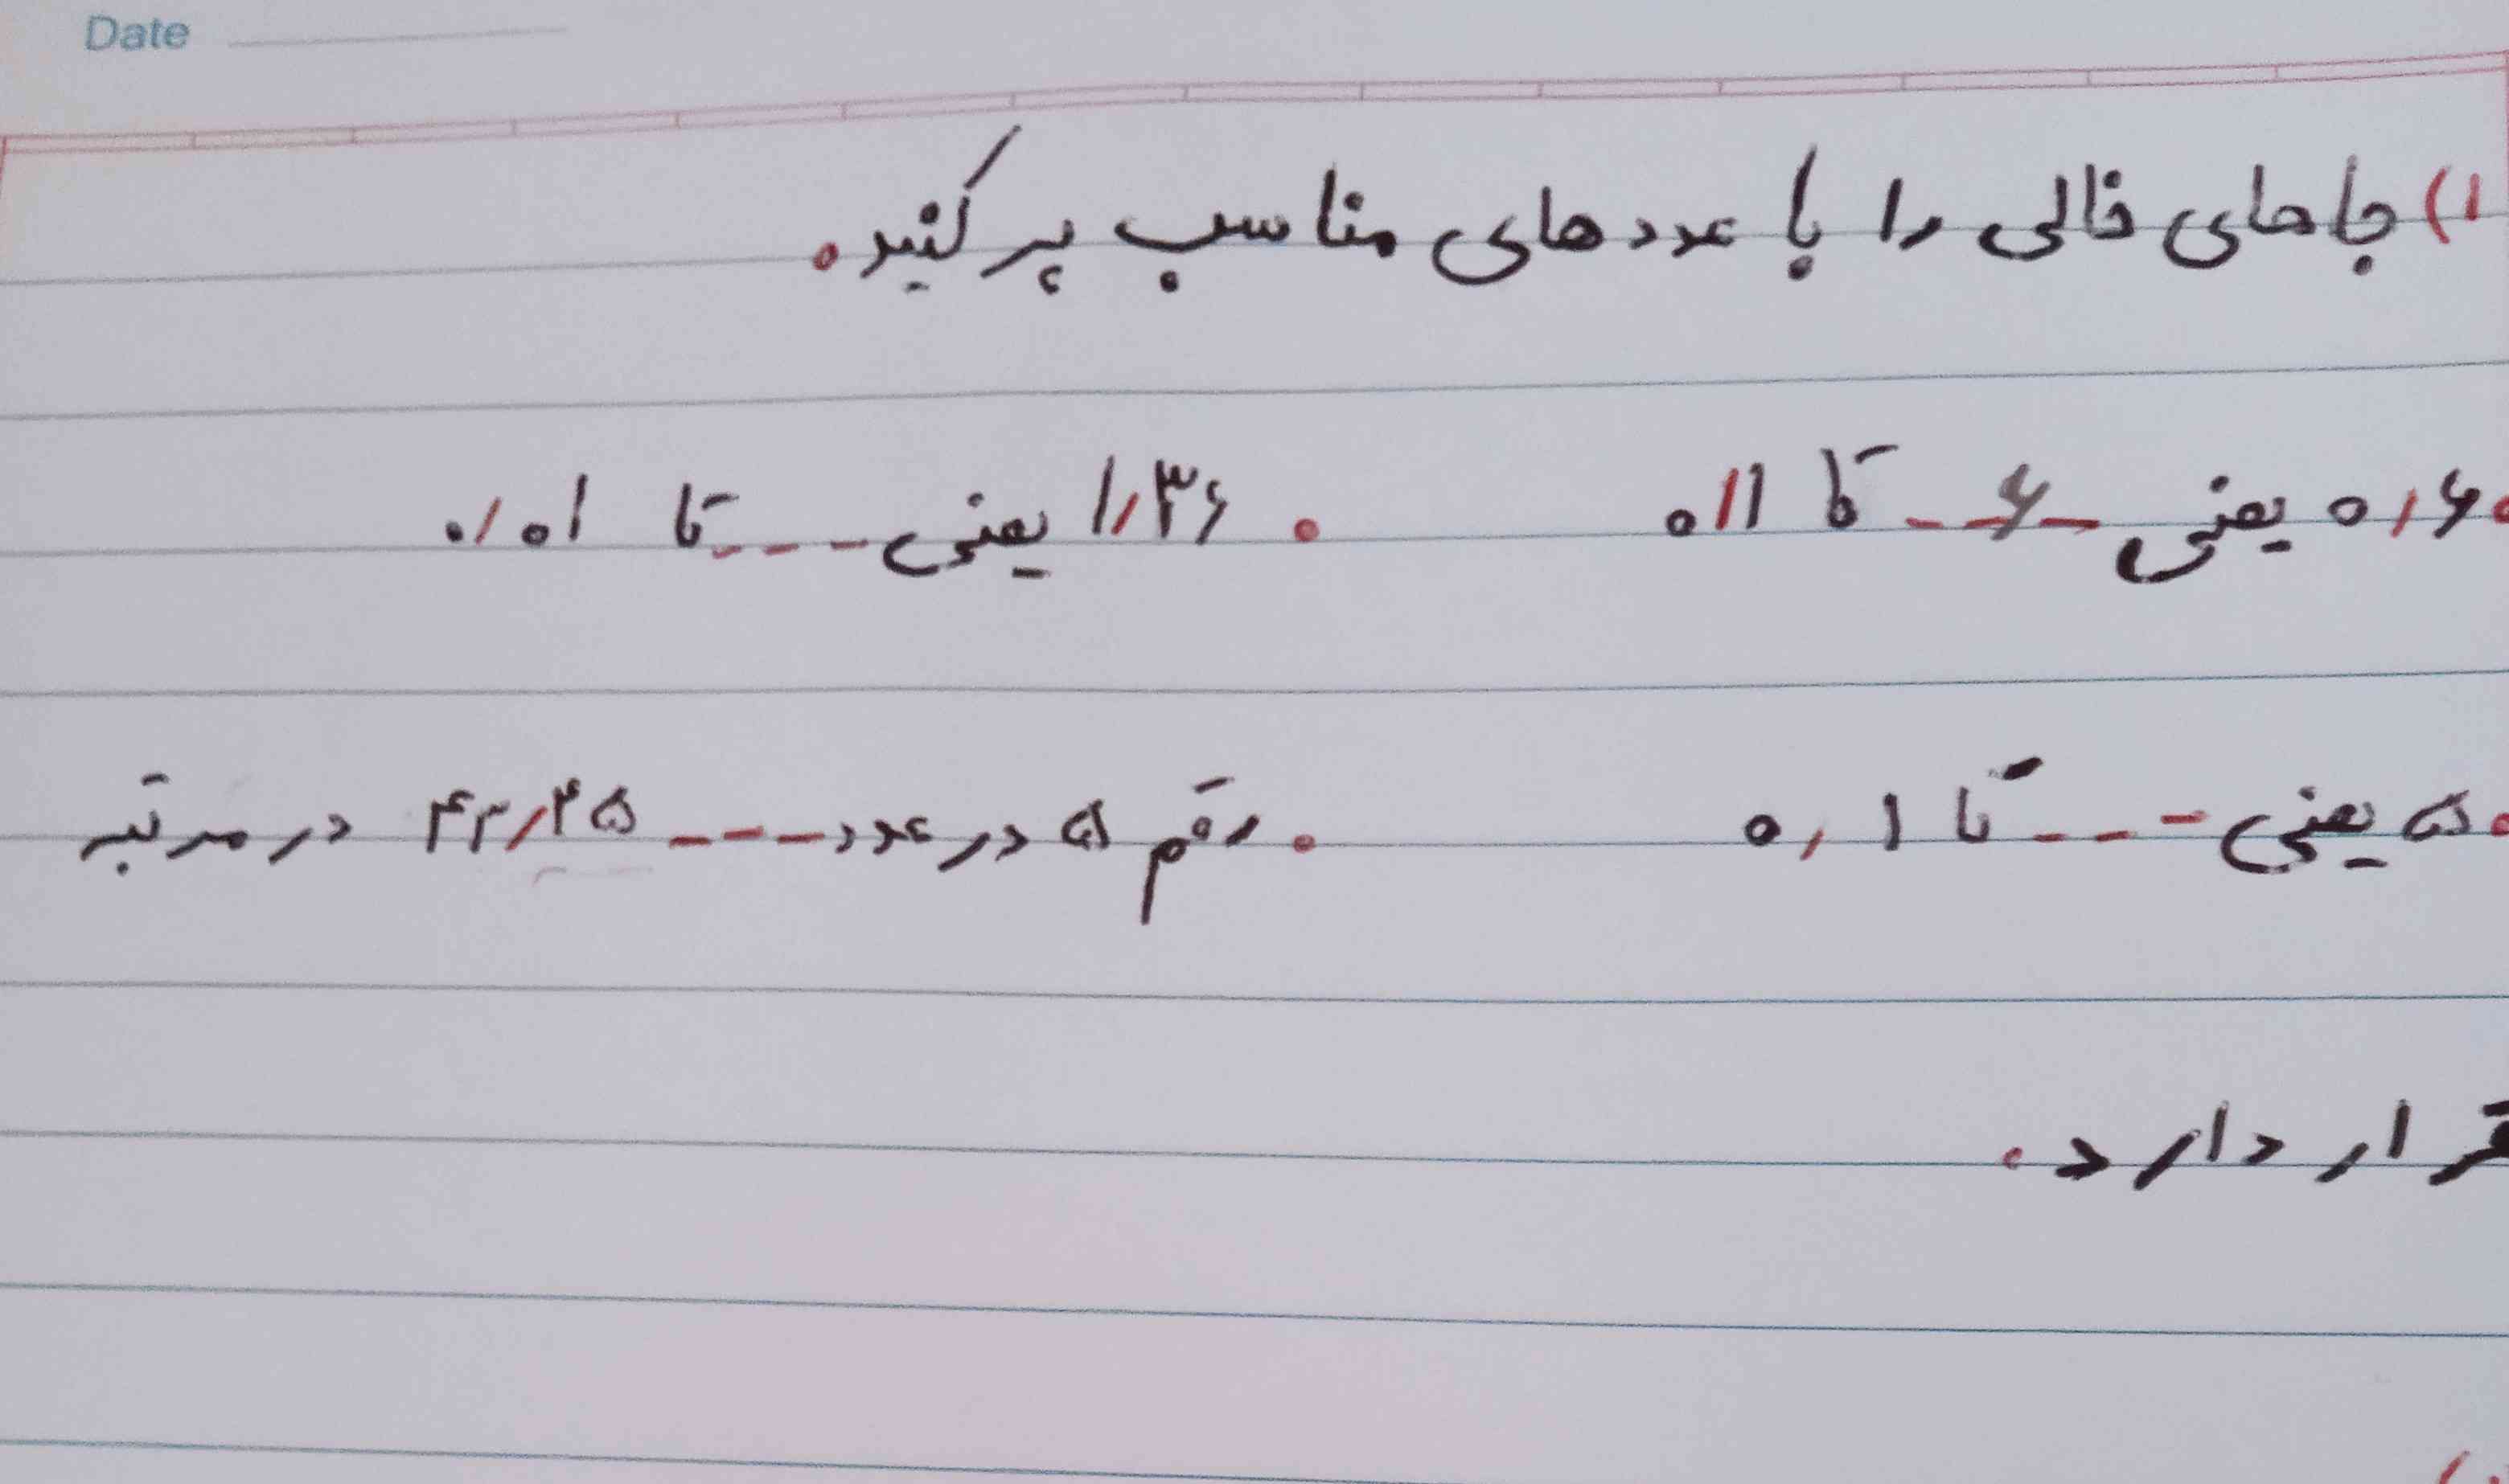 Date
۱) جاهای خالی را با عددهای مناسب پر کنید.
۰٫۶ یعنی - ۶ - تا ۰٫۱ . ۱٫۳۶ یعنی - - - تا ۰٫۰۱
۵ یعنی - - - تا ۰٫۱ . رقم ۵ در عدد - - - ۴۳٫۴۵ در مرتبه
قرار دارد.